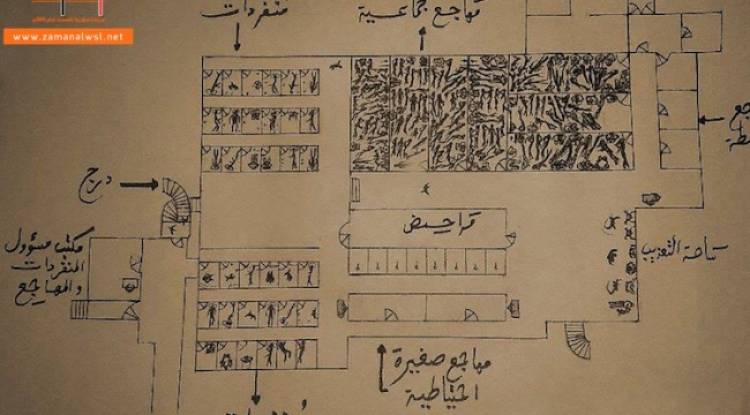 www.zamanalwsl.net
منفردات
مهاجع جماعية
درج
مراحيض
ساحة التعذيب
مكتب مسؤول
المنفردات
والمهاجع
مهاجع صغيرة
احتياطية